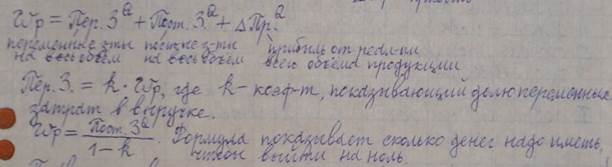 Wр = Пер. З^Q + Пост. З^Q + ΔПр.^Q
переменные з-ты пост-ные з-ты прибыль от реал-ии
на весь объем на весь объем всего объема продукции
Пер. З. = k · Wр, где k – коэф-т, показывающий долю переменных
затрат в выручке.
Wр = Пост. З^Q / 1 - k. Формула показывает сколько денег надо иметь,
чтобы выйти на ноль.